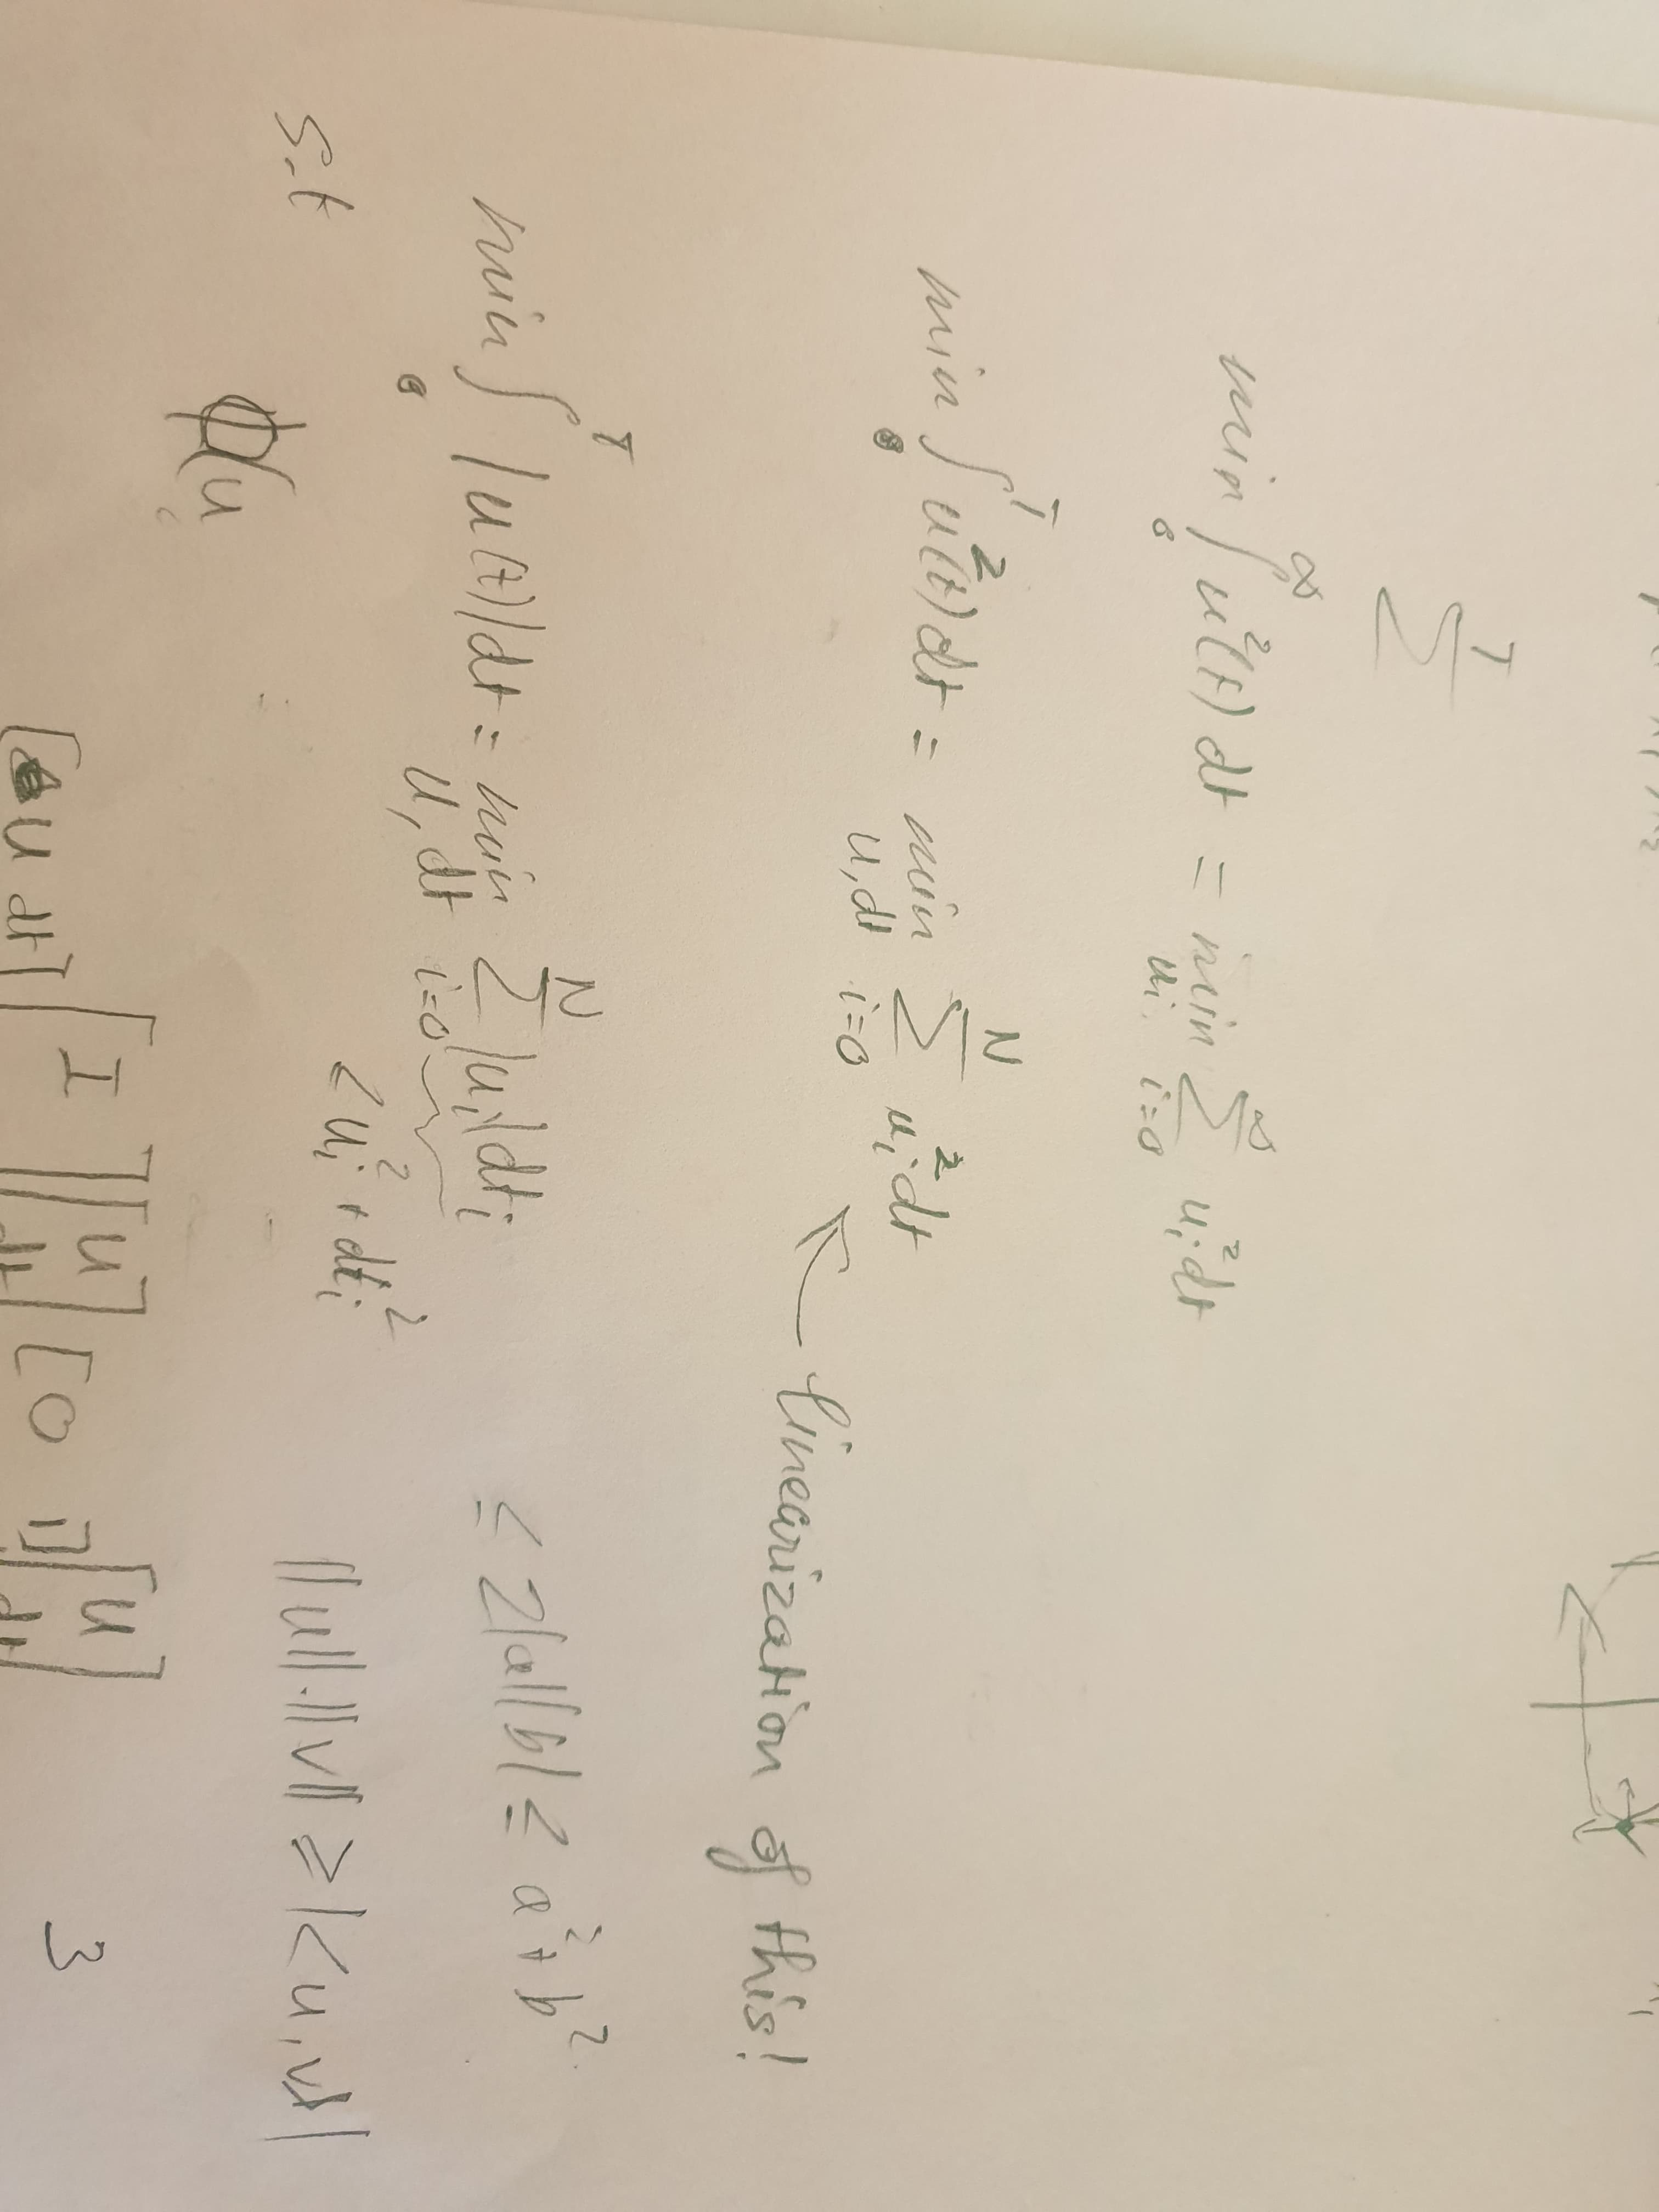 ∑^T
min ∫_0^∞ u²(t) dt = min_{u_i} ∑_{i=0}^∞ u_i² dt
min ∫_0^T u²(t) dt = min_{u,dt} ∑_{i=0}^N u_i² dt
← linearization of this!
min ∫_0^T |u(t)| dt = min_{u,dt} ∑_{i=0}^N |u_i| dt_i ≤ 2|a||b| ≤ a² + b²
< u_i² + dt_i² ||u||·||v|| ≥ |<u,v>|
s.t
(u
[u dt] [I] [u dt] [0 1] [u dt] 3